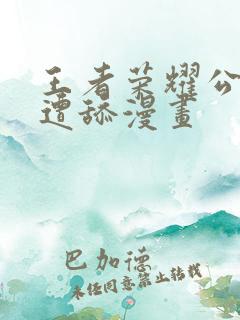 王者荣耀公
遭舔漫畫
巴加德
未经同意禁止转载